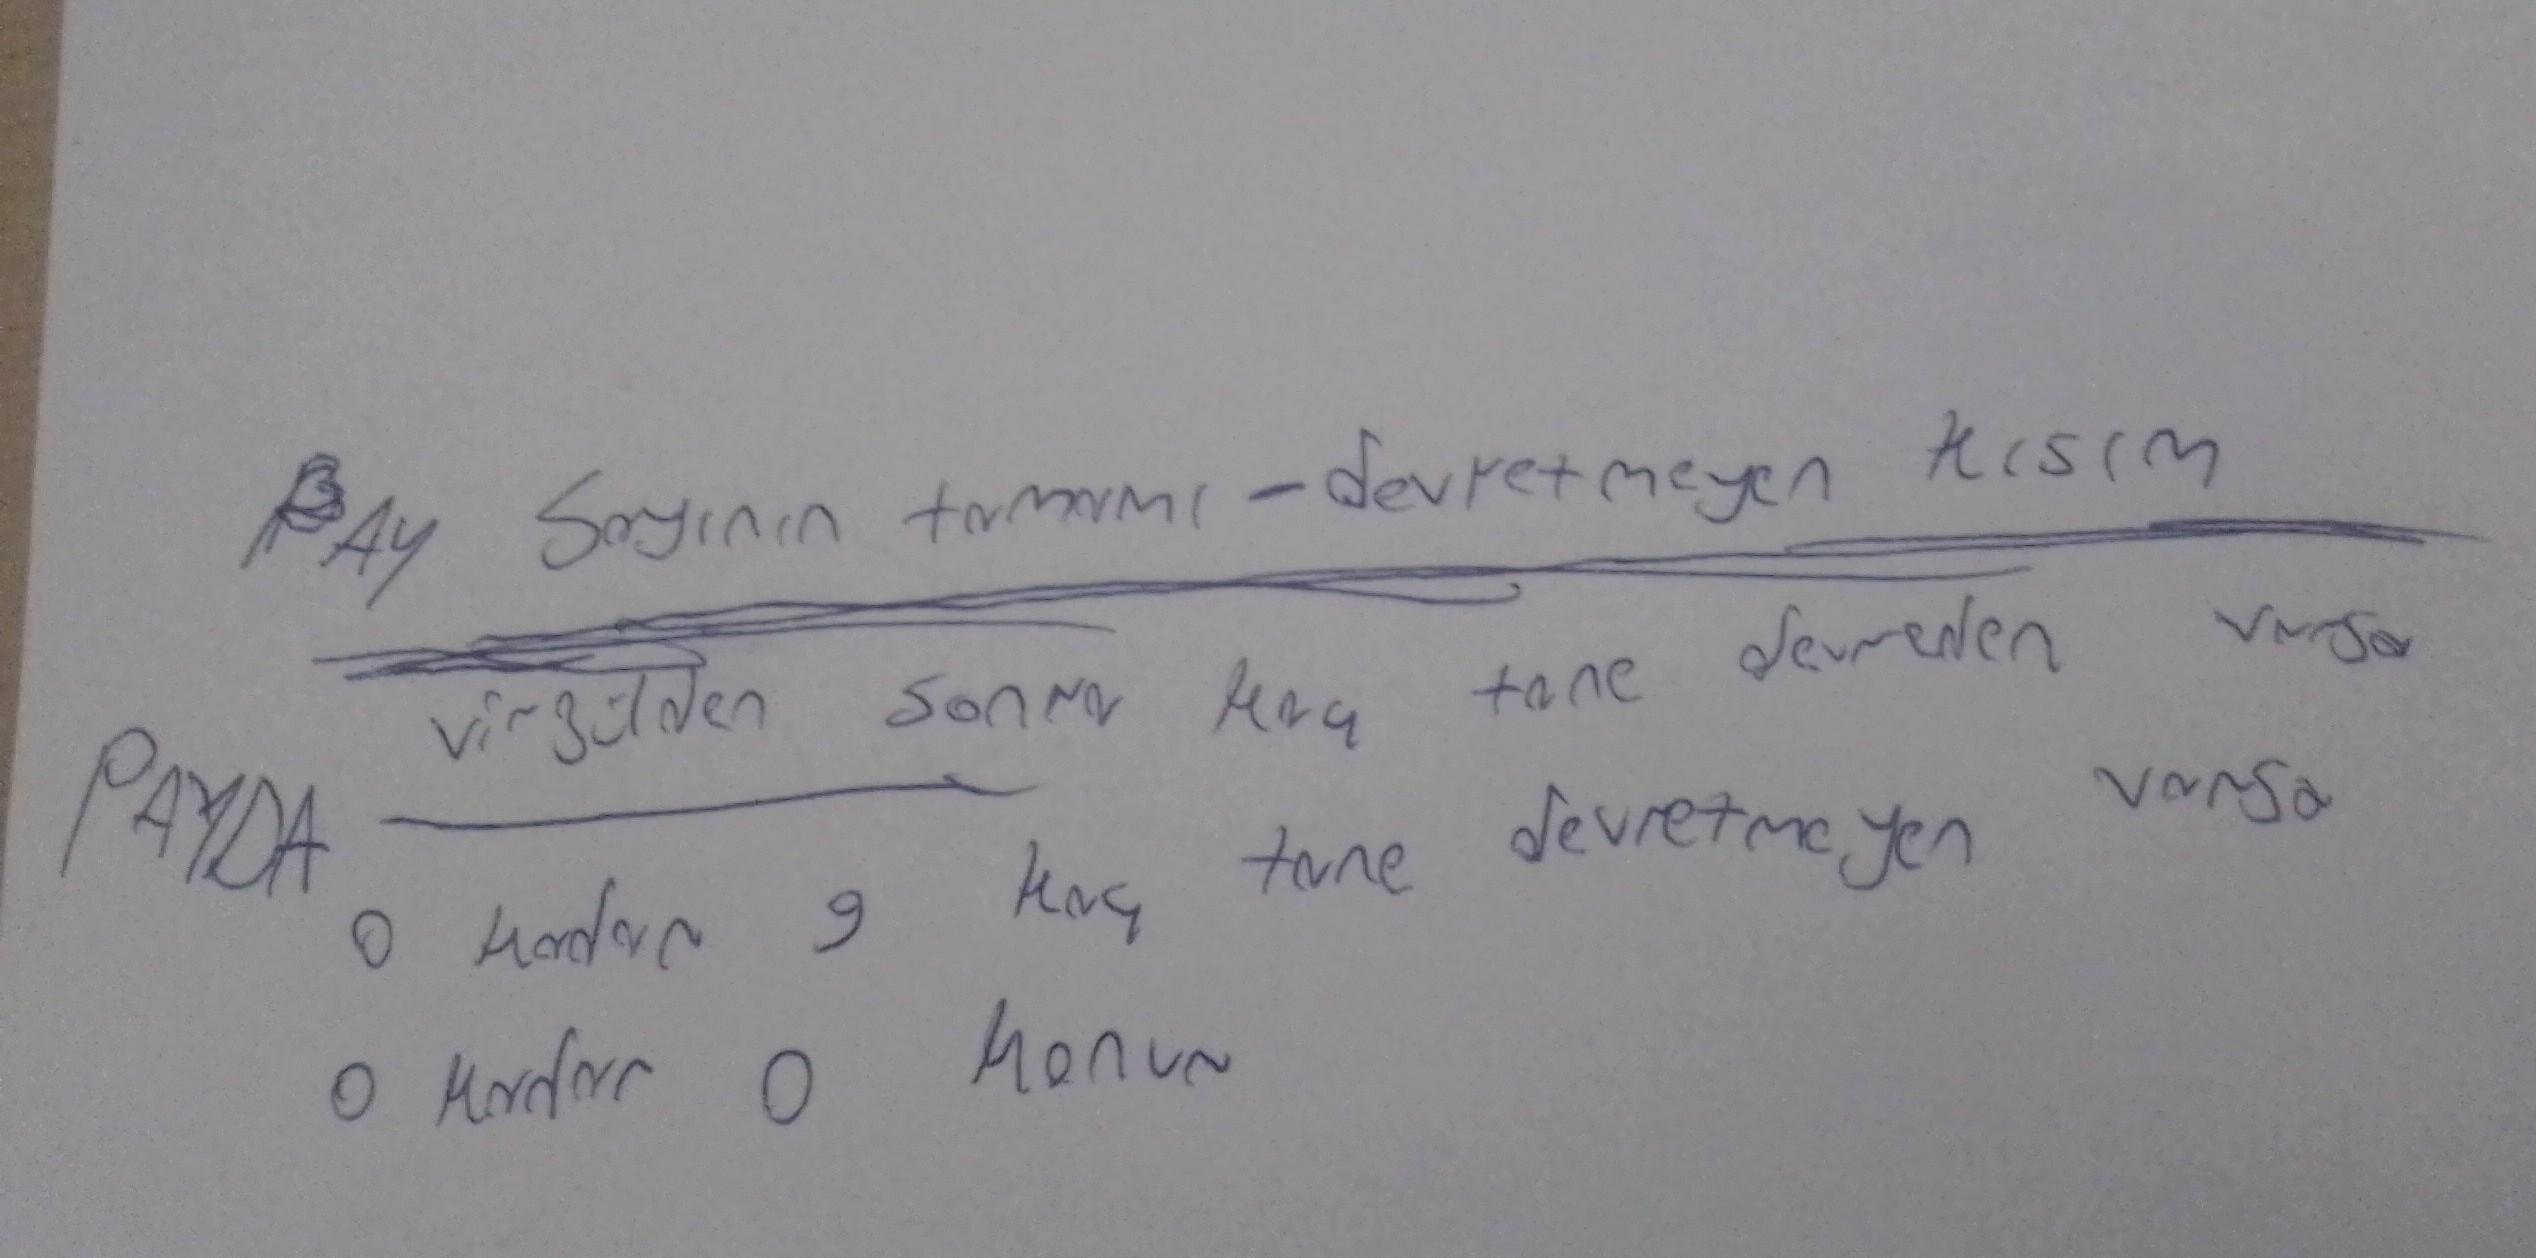 PAY Sayının tamamı - devretmeyen kısım
virgülden sonra kaç tane devreden varsa
PAYDA
o kadar 9 kaç tane devretmeyen varsa
o kadar 0 konur